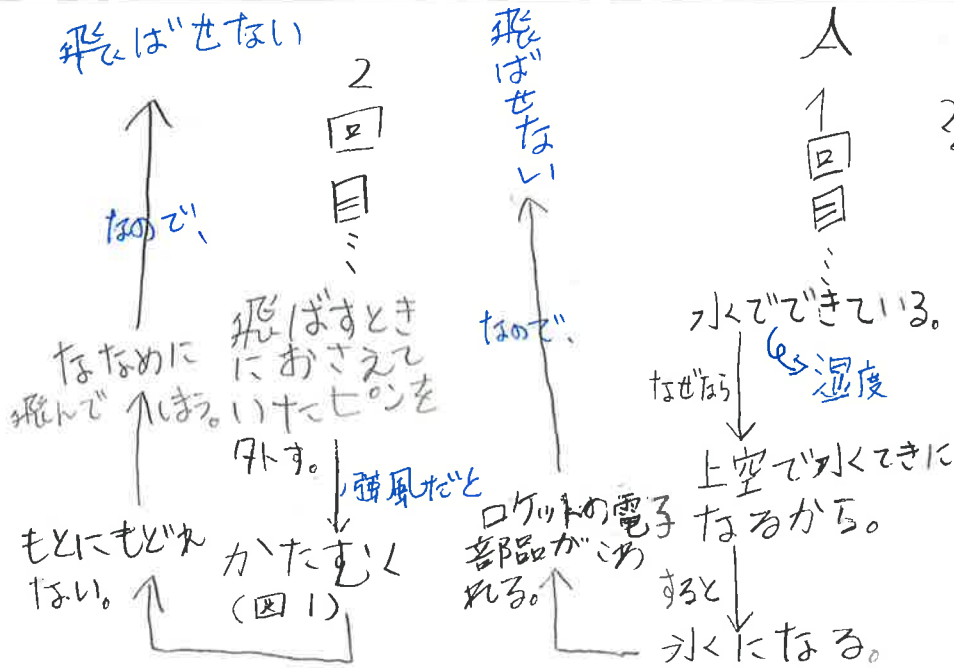 A
1回目…
水でできている。
湿度
なぜなら
上空で水てきに
なるから。
すると
氷になる。
ロケットの電子
部品がこわ
れる。
なので、
飛ばせない
2回目…
飛ばすとき
におさえて
いたピンを
外す。
強風だと
かたむく
(図1)
もとにもどれ
ない。
ななめに
飛んでしまう。
なので、
飛ばせない